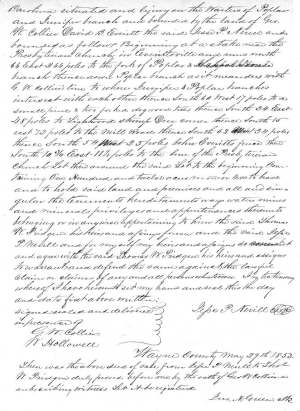 Carolina situated and lying on the Waters of Poplar
and Juniper branch and bounded by the lands of Geo
W Collins David B Everitt the said Jesse P Nevill and
bounded as follows Beginning at a stake near the
Presbyterian Church in Everitts line and runs north
66 East 236 poles to the fork of Poplar &
branch thence down Poplar branch as it meanders with
G W Collins line to where Juniper & Poplar branches
intersect with each other thence South 60 West 17 poles to a
small pine & two pick a gum trees thence South 30 East
48 poles to lightwood stump One corner thence South 15
east 72 poles to the Mill Wood thence South 62 West 34 poles
thence South 5 West 35 poles John Everitts fence then
South 10 East 114 poles to the of the Presbyterian
Church lot then around the said Lot to the beginning Con
taining One Hundred and twelve acres more or less to have
and to hold said land and premises and all and sin
gular the tenements hereditaments ways water mines
and minerals privileges and appurtenances thereunto
belonging or in anywise appertaining to him the said Thomas
W Pridgen his heirs and assigns forever and the said Jesse
P Nevill and for myself my heirs and assigns do covenant
and agree with the said Thomas W Pridgen his heirs and assigns
to warrant and defend the same against the lawful
claim or claims of any and all persons whatsoever In testimony
whereof I have hereunto set my hand and seal this the day
and date first above written
signed sealed and delivered
in presence of Jesse P Nevill
G W Collins
W Hollowell
Wayne County May 29th 1852
Then was the above deed of sale from Jesse P Nevill to Thos
W Pridgen duly proved before me by the oath of Geo W Collins an
subscribing witness Let it be registered